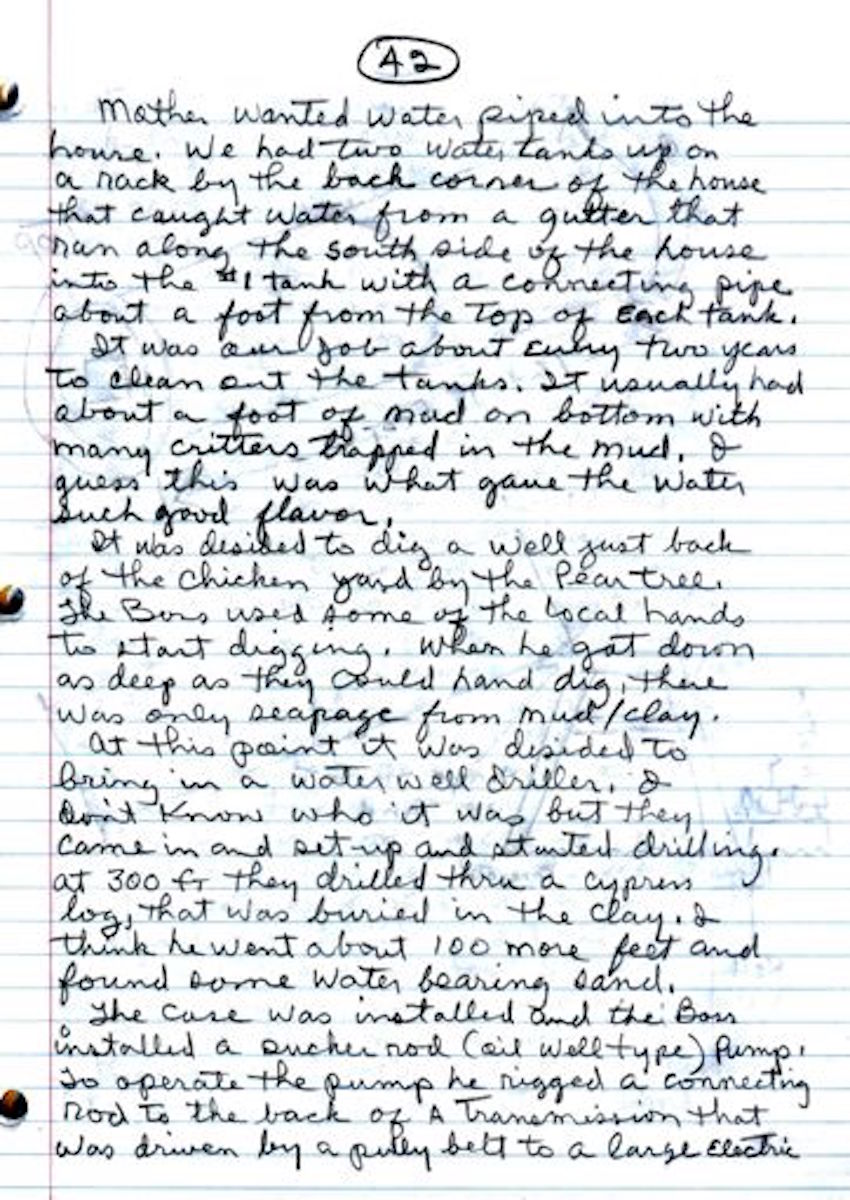 42
Mother wanted water piped into the
house. We had two water tanks up on
a rack by the back corner of the house
that caught water from a gutter that
ran along the south side of the house
into the #1 tank with a connecting pipe
about a foot from the top of Each tank.
It was our job about every two years
to clean out the tanks. It usually had
about a foot of mud on bottom with
many critters trapped in the mud. I
guess this was what gave the water
such good flavor.
It was desided to dig a well just back
of the chicken yard by the Pear tree.
The Boss used some of the local hands
to start digging. When he got down
as deep as they could hand dig, there
was only seapage from mud/clay.
At this point it was desided to
bring in a water well driller. I
don't know who it was but they
came in and set-up and started drilling.
at 300 ft they drilled thru a cypress
log, that was buried in the clay. I
think he went about 100 more feet and
found some water bearing sand.
The case was installed and the Boss
installed a sucker rod (oil well type) pump.
To operate the pump he rigged a connecting
rod to the back of A Transmission that
was driven by a pully belt to a large Electric